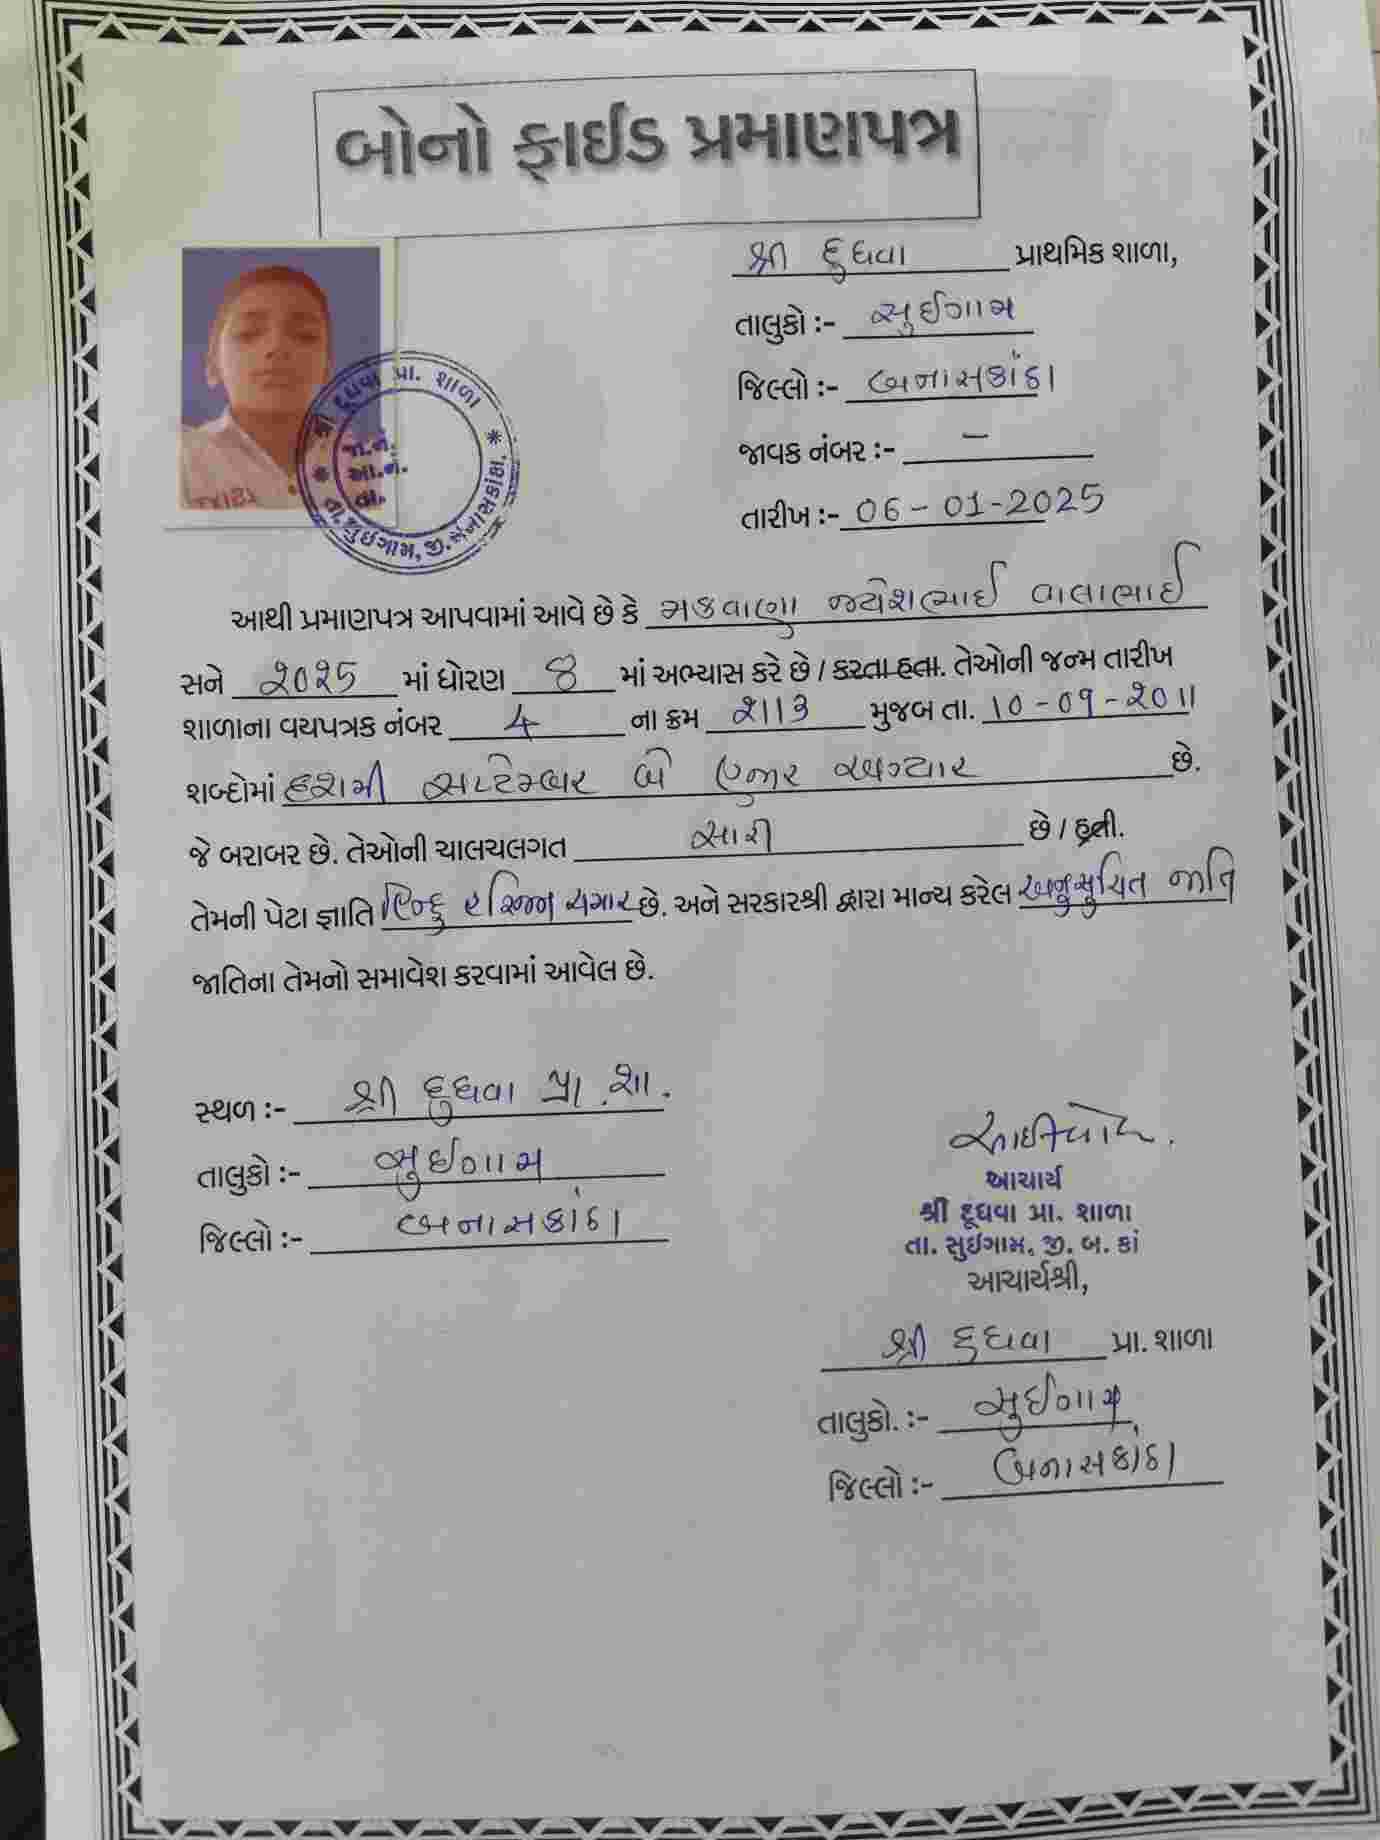 બોનો ફાઈડ પ્રમાણપત્ર
શ્રી દુધવા પ્રાથમિક શાળા,
તાલુકો :- સુઈગામ
જિલ્લો :- બનાસકાંઠા
જાવક નંબર :- –
તારીખ :- 06-01-2025
શ્રી દુધવા પ્રા. શાળા * તા. સુઈગામ, જી. બનાસકાંઠા. *
જા.નં.
આ.નં.
તા.
આથી પ્રમાણપત્ર આપવામાં આવે છે કે મકવાણા જયેશભાઈ વાલાભાઈ
સને ૨૦૨૫ માં ધોરણ 8 માં અભ્યાસ કરે છે / કરતા હતા. તેઓની જન્મ તારીખ
શાળાના વયપત્રક નંબર 4 ના ક્રમ ૨૧૧૩ મુજબ તા. 10-09-2011
શબ્દોમાં દશમી સપ્ટેમ્બર બે હજાર અગ્યાર છે.
જે બરાબર છે. તેઓની ચાલચલગત સારી છે / હતી.
તેમની પેટા જ્ઞાતિ હિન્દુ હરિજન ચમાર છે. અને સરકારશ્રી દ્વારા માન્ય કરેલ અનુસુચિત જાતિ
જાતિના તેમનો સમાવેશ કરવામાં આવેલ છે.
સ્થળ :- શ્રી દુધવા પ્રા.શા.
તાલુકો :- સુઈગામ
જિલ્લો :- બનાસકાંઠા
આચાર્ય
શ્રી દૂધવા પ્રા. શાળા
તા. સુઈગામ, જી. બ. કાં
આચાર્યશ્રી,
શ્રી દુધવા પ્રા. શાળા
તાલુકો. :- સુઈગામ
જિલ્લો :- બનાસકાંઠા